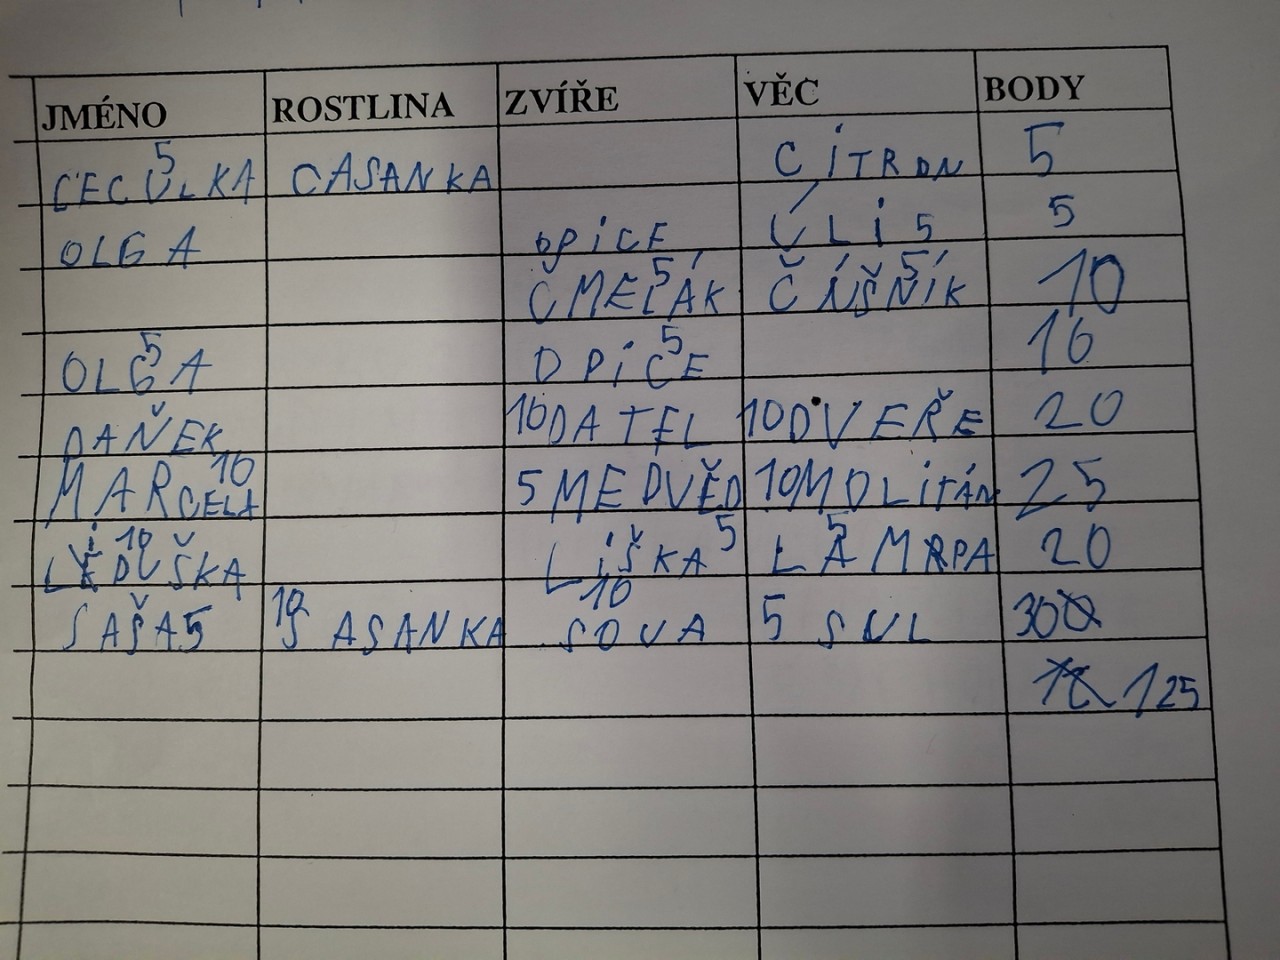 JMÉNO ROSTLINA ZVÍŘE VĚC BODY
CECULKA 5 CASANKA CITRON 5
OLGA OPICE ÚLI 5 5
ČMELÁK 5 ČÍŠNÍK 5 10
OLGA 5 OPICE 5 10
DANĚK 10 DATEL 10 DVEŘE 20
MARCELA 10 5 MEDVĚD 10 MOLITAN 25
LIDUŠKA 10 LIŠKA 5 5 20
SAŠA 5 10 SASANKA 10 SOVA 5 SUL 30
125